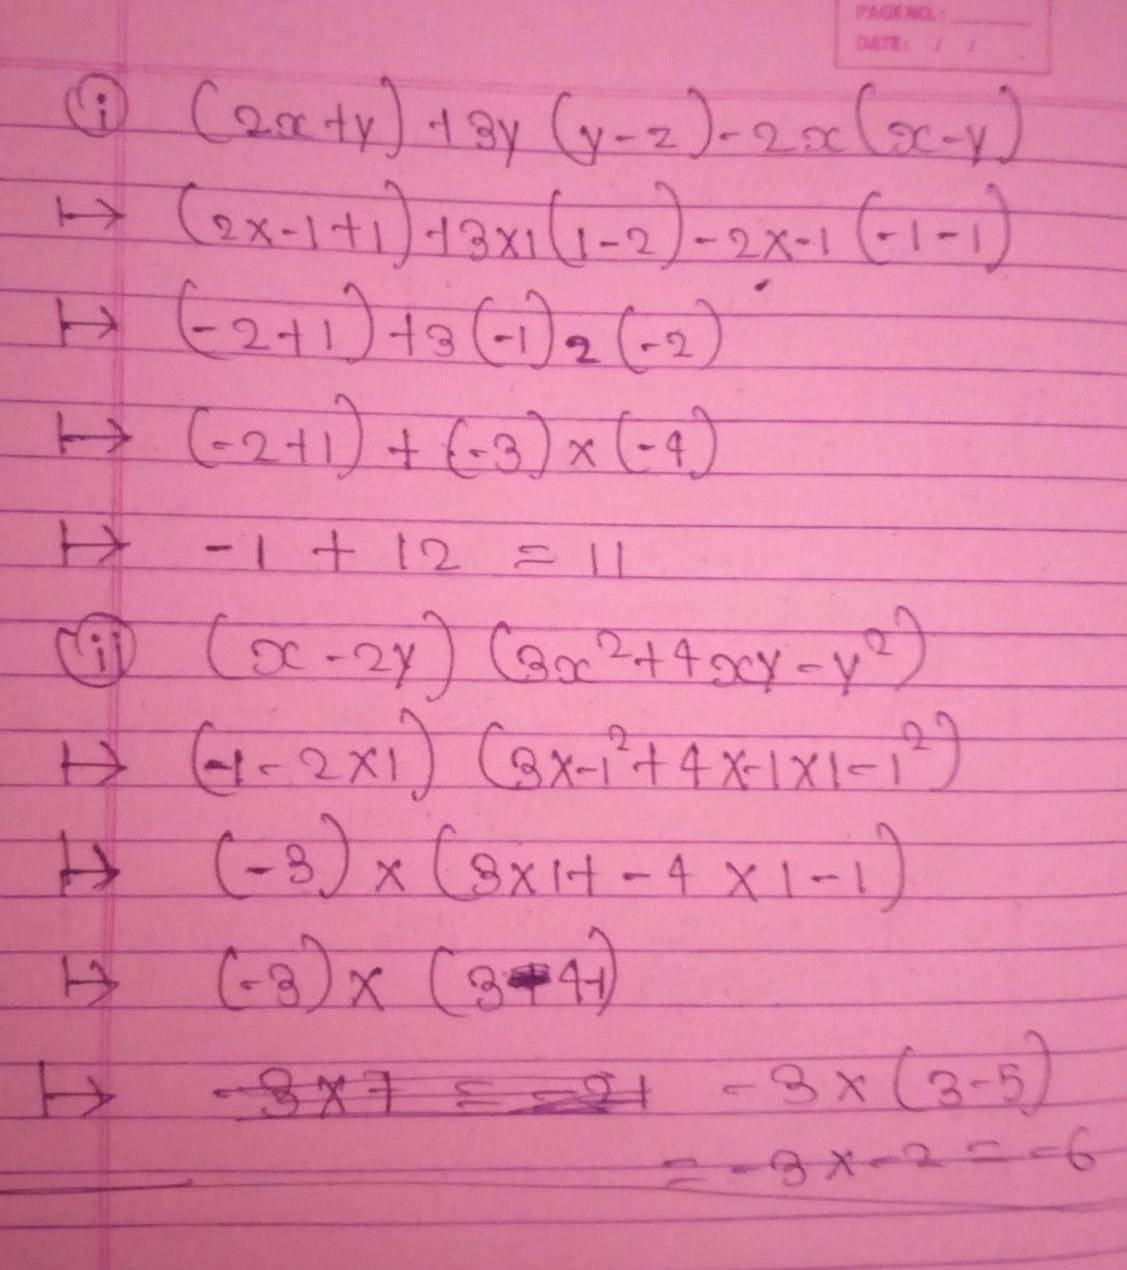 PAGE NO.:
DATE: / /
(i) (2x+y) + 3y (y-2) - 2x (x-y)
↦ (2x-1+1) + 3x1 (1-2) - 2x-1 (-1-1)
↦ (-2+1) + 3 (-1) 2 (-2)
↦ (-2+1) + (-3) x (-4)
↦ -1 + 12 = 11
(ii) (x-2y) (3x²+4xy-y²)
↦ (-1-2x1) (3x-1²+4x-1x1-1²)
↦ (-3) x (3x1+-4x1-1)
↦ (-3) x (3-4-1)
↦ -3x7 = -21 -3x(3-5)
= -3x-2 = -6